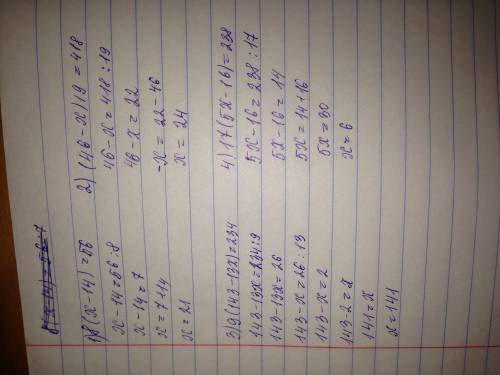 1) 8(x-14)=56
x-14=56:8
x-14=7
x=7+14
x=21
2) (46-x)19=418
46-x=418:19
46-x=22
-x=22-46
x=24
3) 9(143-13x)=234
143-13x=234:9
143-13x=26
143-x=26:13
143-x=2
143-2=x
141=x
x=141
4) 17(5x-16)=238
5x-16=238:17
5x-16=14
5x=14+16
5x=30
x=6